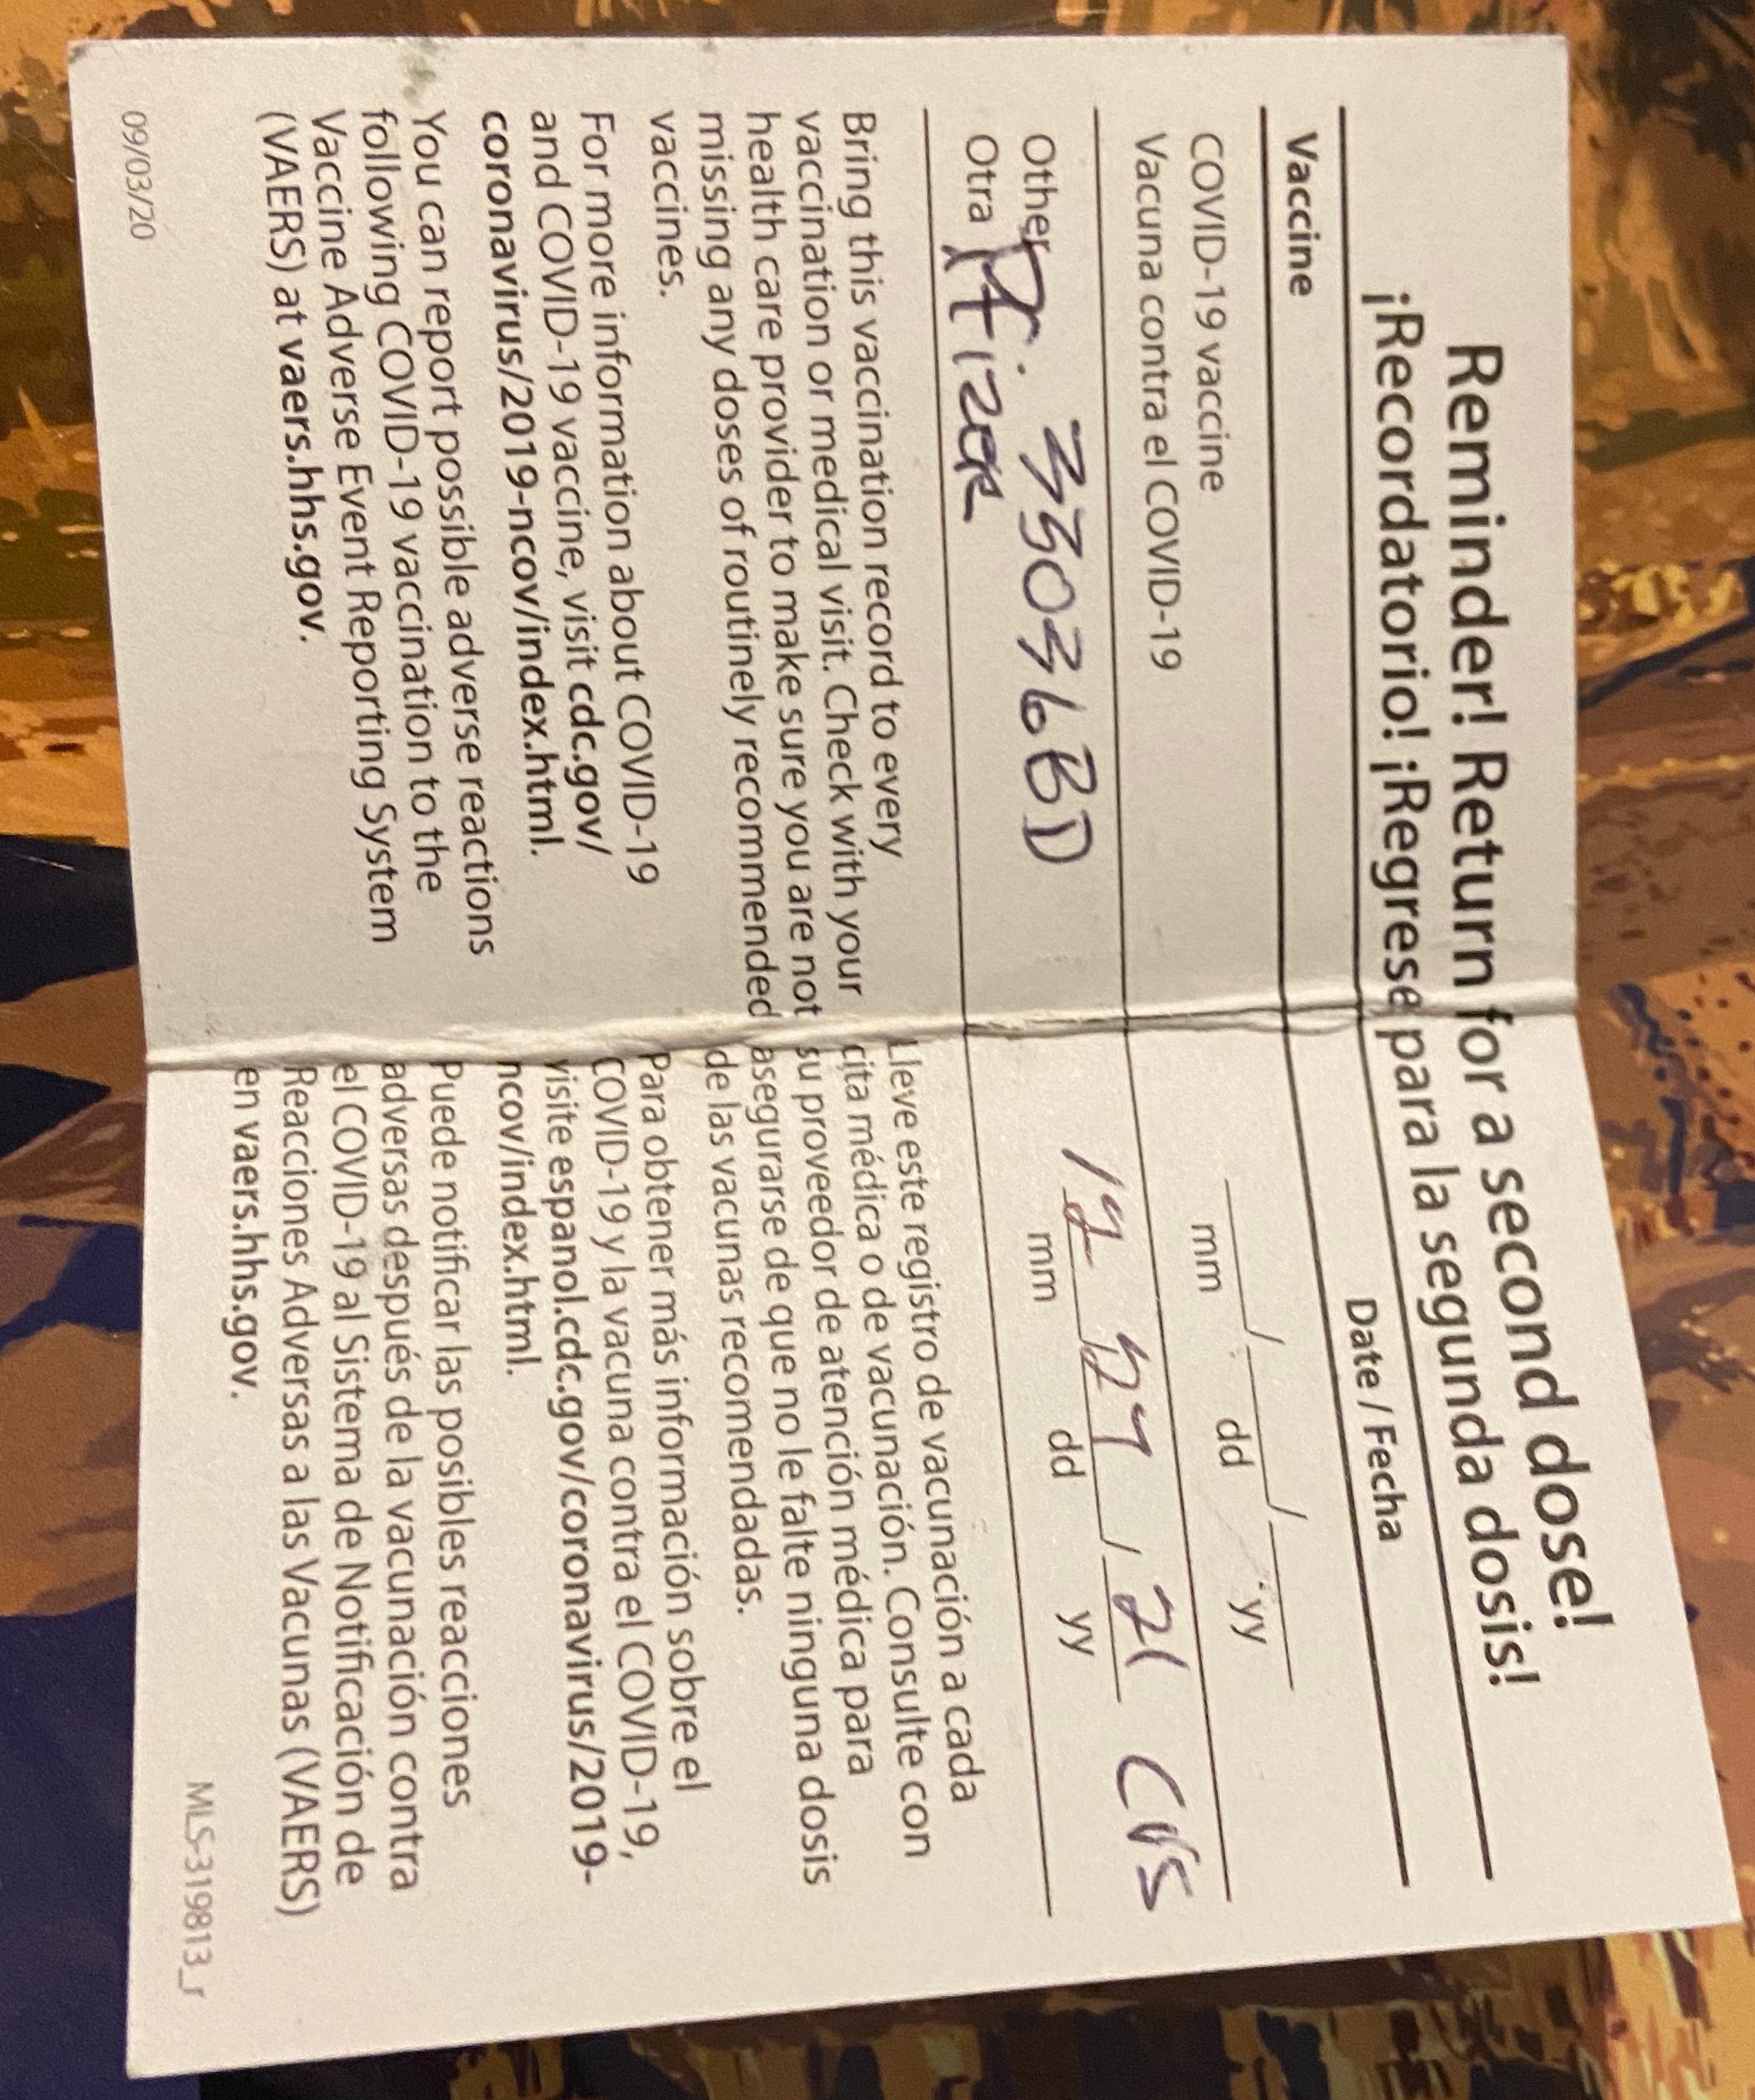 Reminder! Return for a second dose!
¡Recordatorio! ¡Regrese para la segunda dosis!
Vaccine
Date / Fecha
COVID-19 vaccine
Vacuna contra el COVID-19
____/____/____
mm dd yy
Other
Otra
Pfizer
33036BD
21 CVS
mm dd yy
Bring this vaccination record to every
vaccination or medical visit. Check with your
health care provider to make sure you are not
missing any doses of routinely recommended
vaccines.
For more information about COVID-19
and COVID-19 vaccine, visit cdc.gov/
coronavirus/2019-ncov/index.html.
You can report possible adverse reactions
following COVID-19 vaccination to the
Vaccine Adverse Event Reporting System
(VAERS) at vaers.hhs.gov.
Lleve este registro de vacunación a cada
cita médica o de vacunación. Consulte con
su proveedor de atención médica para
asegurarse de que no le falte ninguna dosis
de las vacunas recomendadas.
Para obtener más información sobre el
COVID-19 y la vacuna contra el COVID-19,
visite espanol.cdc.gov/coronavirus/2019-
ncov/index.html.
Puede notificar las posibles reacciones
adversas después de la vacunación contra
el COVID-19 al Sistema de Notificación de
Reacciones Adversas a las Vacunas (VAERS)
en vaers.hhs.gov.
09/03/20
MLS-319813_r